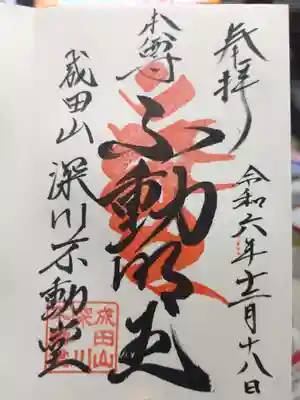 奉拝
令和六年十二月十八日
本尊
不動明王
成田山
深川不動堂
成田山
深川
不動堂